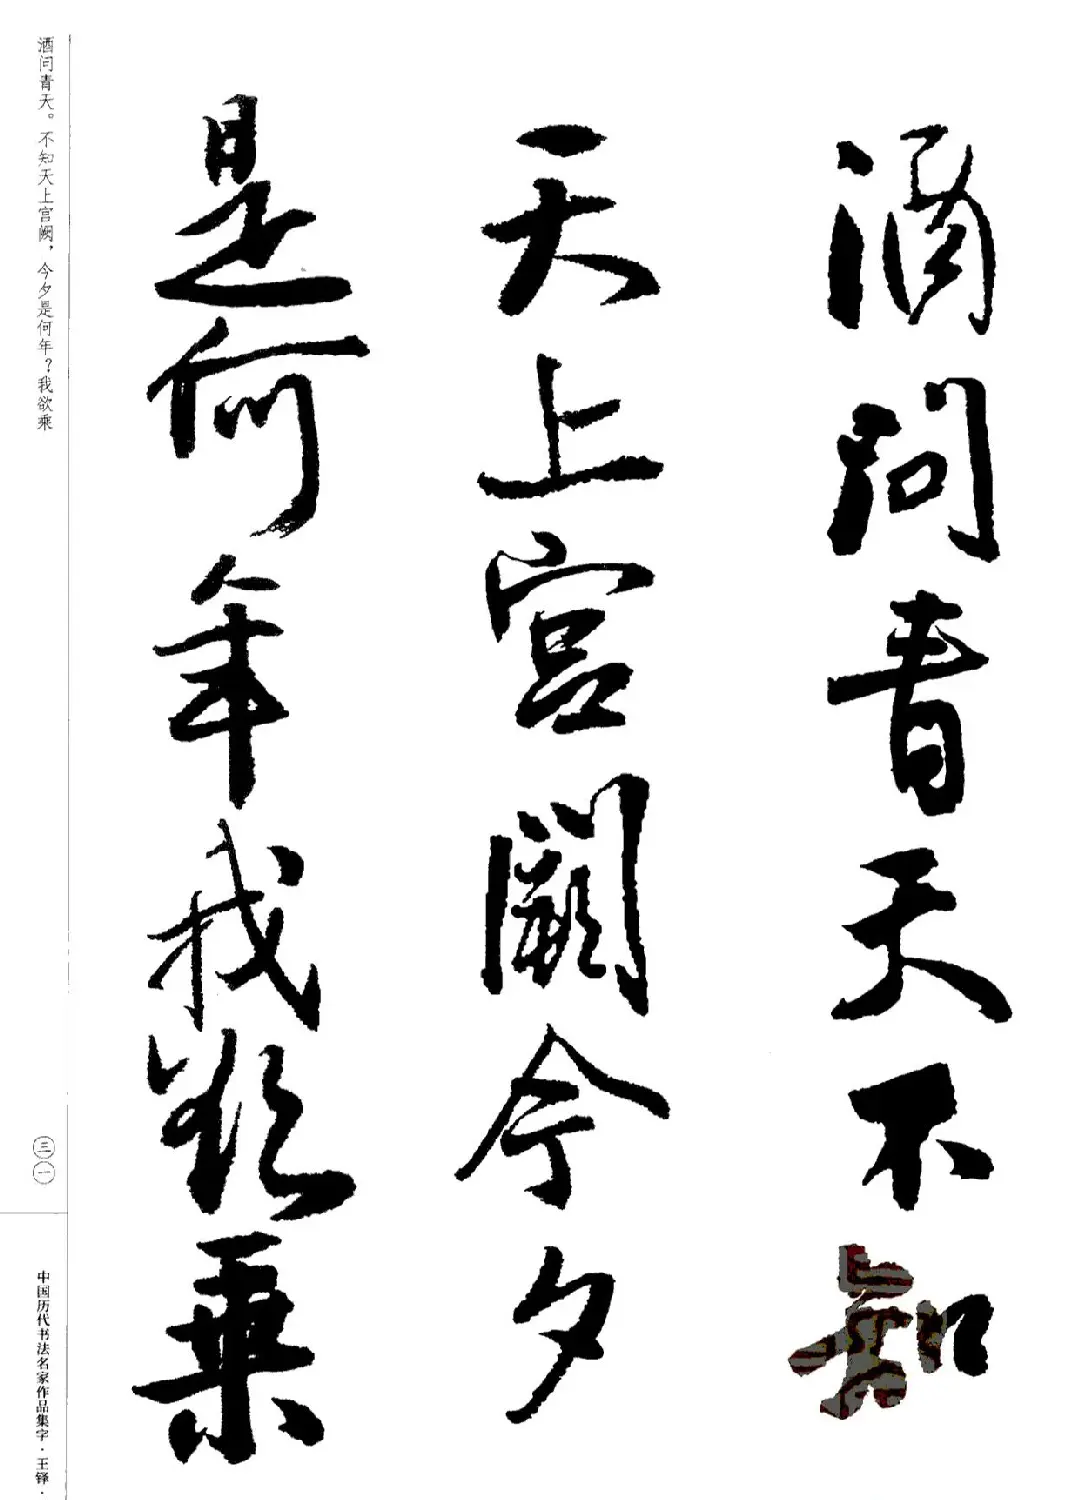 酒问青天不知
天上宫阙今夕
是何年我欲乘
酒问青天。不知天上宫阙，今夕是何年？我欲乘
三一
中国历代书法名家作品集字·王铎·